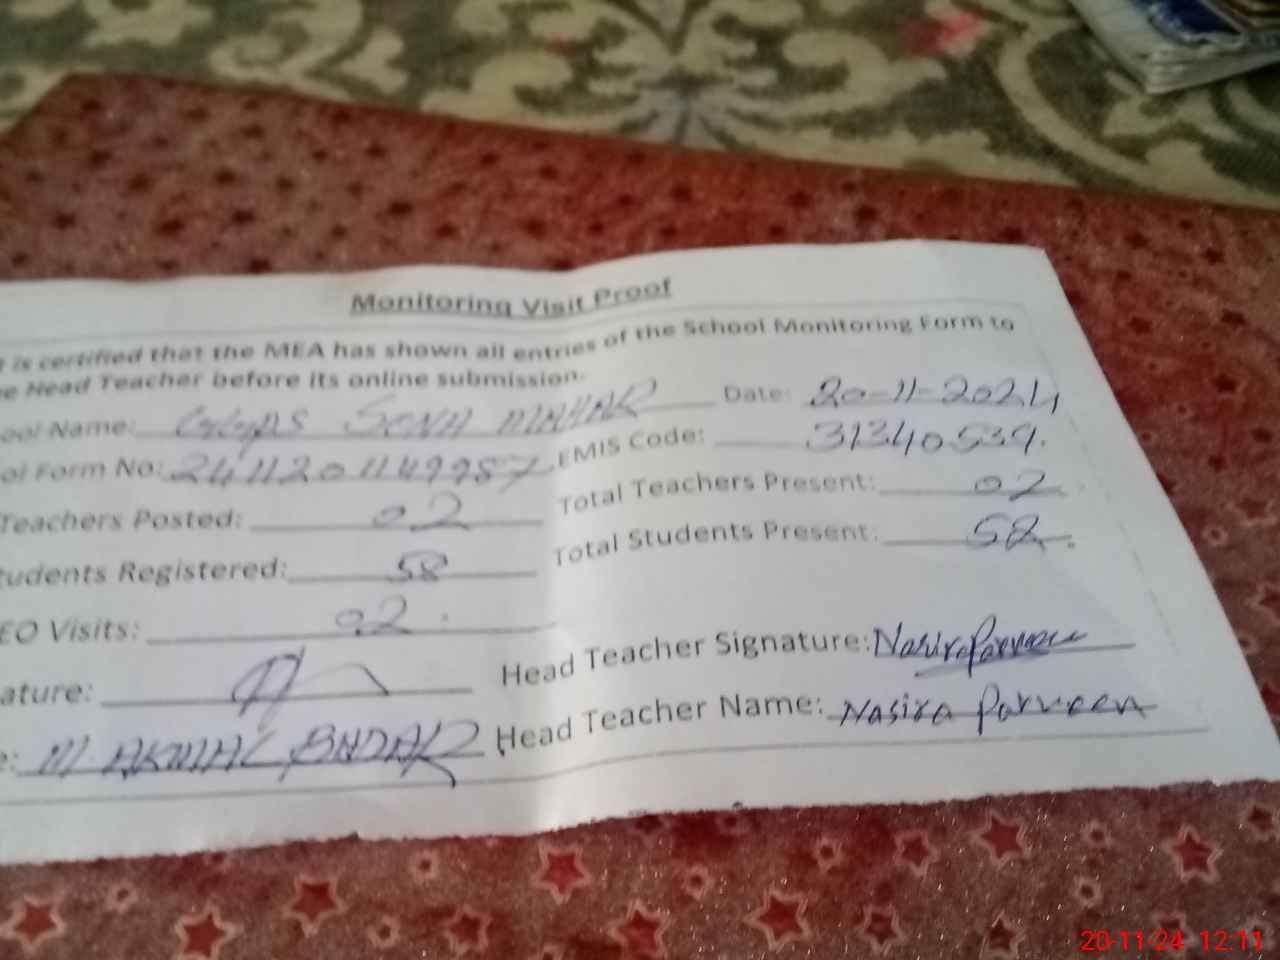 Monitoring Visit Proof
t is certified that the MEA has shown all entries of the School Monitoring Form to
he Head Teacher before its online submission.
ool Name: GGPS SONA MAHAR Date: 20-11-2024
ol Form No: EMIS Code: 31340539.
Teachers Posted: 02 Total Teachers Present: 02
tudents Registered: 58 Total Students Present: 52.
EO Visits: 02.
ature: Head Teacher Signature: Nasira Parveen
e: M. AKMAL Head Teacher Name: Nasira Parveen
20-11-24 12:11